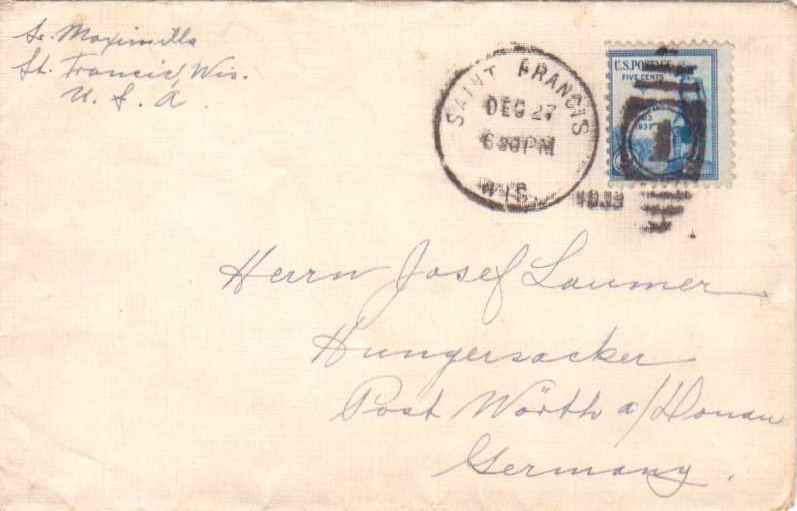 Sr. Maximilla
St. Francis, Wis.
U. S. A.
SAINT FRANCIS
DEC 27
6 30 PM
WIS.
1939
U.S. POSTAGE
FIVE CENTS
1
Herrn Josef Laumer
Hungersacker
Post Wörth a/Donau
Germany.